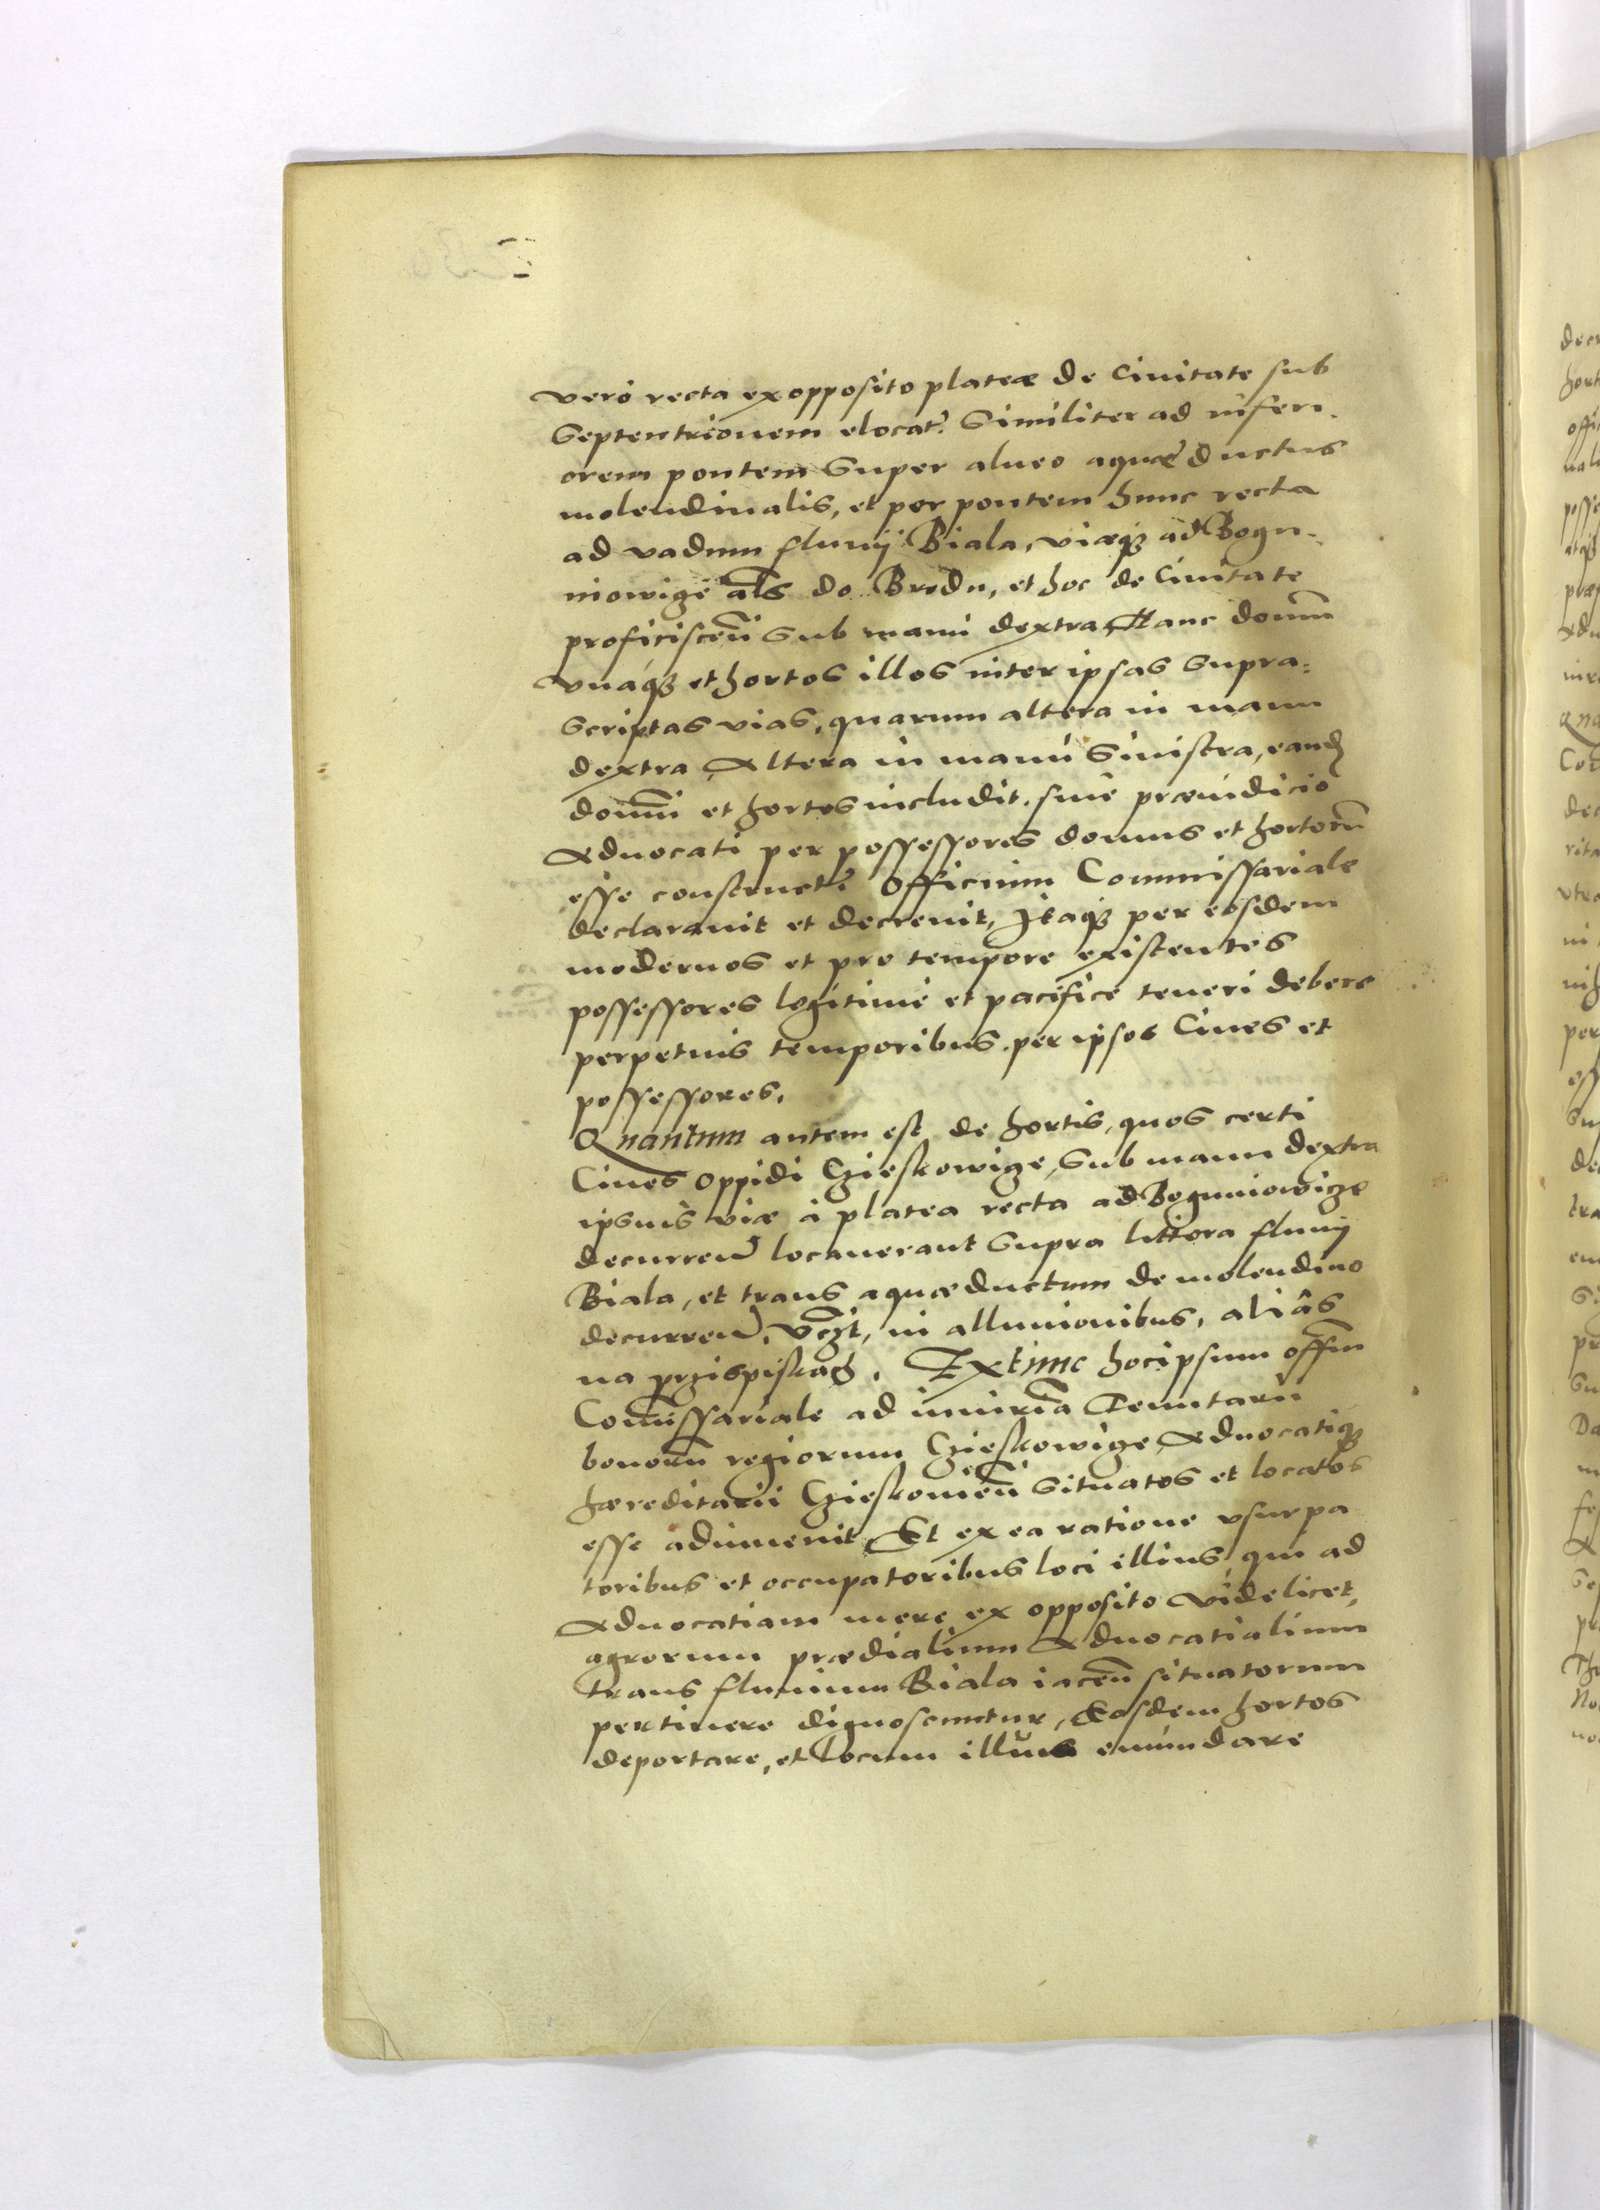 vero recta ex opposito plateæ de Ciuitate sub
Septentrionem elocat. Similiter ad inferi-
orem pontem super alueo aquæ ductus
molendinalis, et per pontem hunc recta
ad vadum fluuij Biala, viæq₃ ad Bogu-
niowicze als do Brodu, et hoc de Ciuitate
proficiscen̄ sub manu dextra, Hanc domū
vnaq₃ et hortos illos inter ipsas supra-
scriptas vias, quarum altera in manu
dextra Altera in manu Sinistra, eand
domū et hortos includit, sine præiudicio
Aduocati per possessores domus et hortorū
esse constructā Officium Commissariale
declarauit et decreuit, Itaq₃ per eosdem
modernos et pro tempore existentes
possessores legitime et pacifice teneri debere
perpetuis temporibus per ipsos Ciues et
possessores.
Quantum autem est de hortis, quos certi
Ciues oppidi Czieskowicze, sub manu dextra
ipsius viæ à platea recta ad Boguniowicze
decurren locauerant supra littora fluuij
Biala, et trans aquæductum de molendino
decurren, vczt, in alluuionibus, aliâs
na przispiskach. Ex tunc hoc ipsum offm
Com̄issariale ad iniuriā Tenutarii
bonorū regiorum Czieskowicze, Aduocatiq₃
hæreditarii Czieskouicen̄ situatos et locatos
esse adinuenit, Et ex ea ratione vsurpa
toribus et occupatoribus loci illius, qui ad
Aduocatiam mere ex opposito videlicet,
agrorum prædialium Aduocatialium
trans fluuium Biala iacen̄ situatorum
pertinere dignoscuntur, Eosdem hortos
deportare, et locum illum emundare